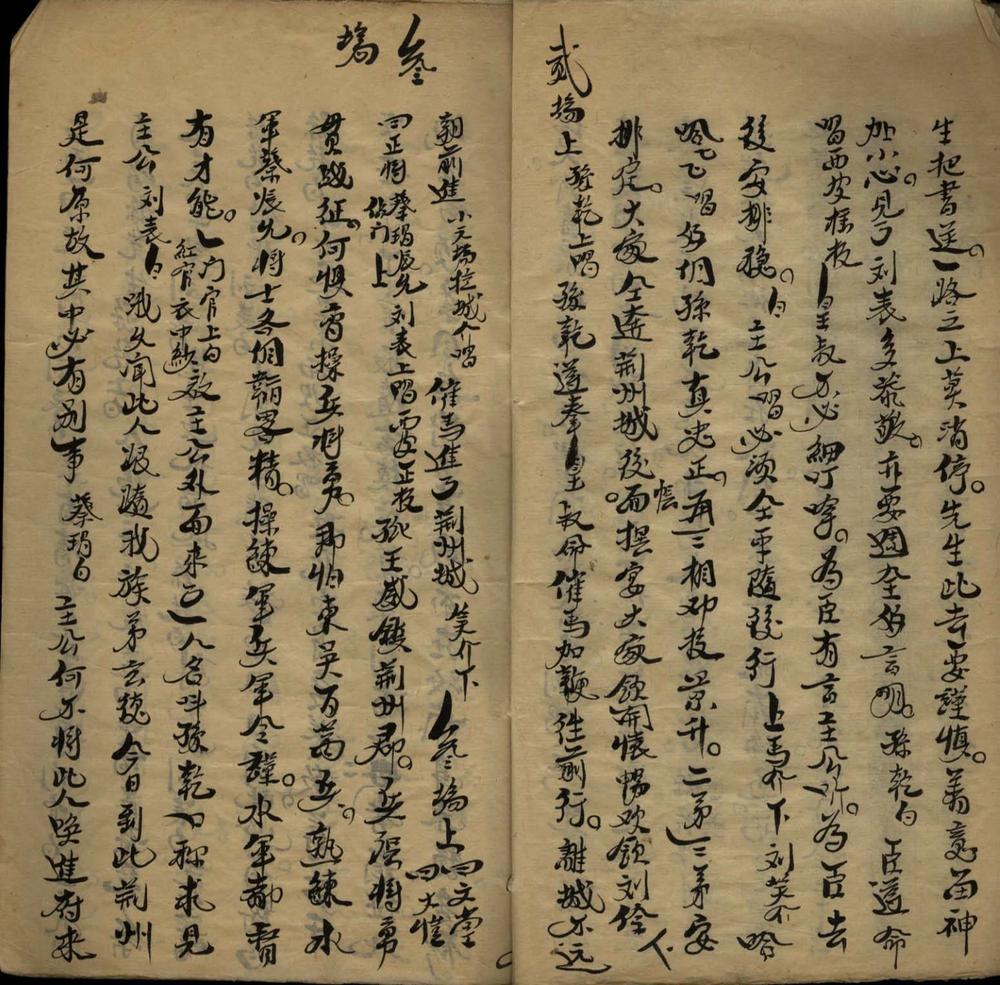 生把書送。一路之上莫消停。先生此去要謹慎。着意留神
加小心。見了刘表多恭敬。亦要週全的言明。孫乾白 臣遵命
唱西皮樣板 皇叔不必細叮嚀。為臣有言主公听。為臣去
後安排穩。白 主公唱必須全軍隨後行 上馬介下 刘英介
唱 孫乾真忠正。再三相劝投景升。二弟三弟安
排定。大家全奔荆州城。後面擺宴大家飲開懷暢欢飲刘 下
貳塲上 孫乾上唱 孫乾遵奉皇叔命催馬加鞭往前行。離城不远
叄塲
朝前進 小元塲拉城介唱 催馬進了荆州城 笑介下 叄塲上 四文堂 四大鎧
四正将蔡瑁張允 上 刘表上唱西皮正板 孤王威鎮荆州郡。兵强将勇
貫戰征。何惧曹操兵将勇。那怕東吴百萬兵。熟鍊水
軍蔡張允。将士各個韜畧精。操鍊軍兵軍令謹。水軍都督
有才能。门官上白 紅官衣中紗 啟主公外面来了一人名叫孫乾口称求見
主公 刘表白 哦久闻此人跟隨我族弟玄德今日到此荆州
是何原故其中必有别事 蔡瑁白 主公何不将此人喚進府来